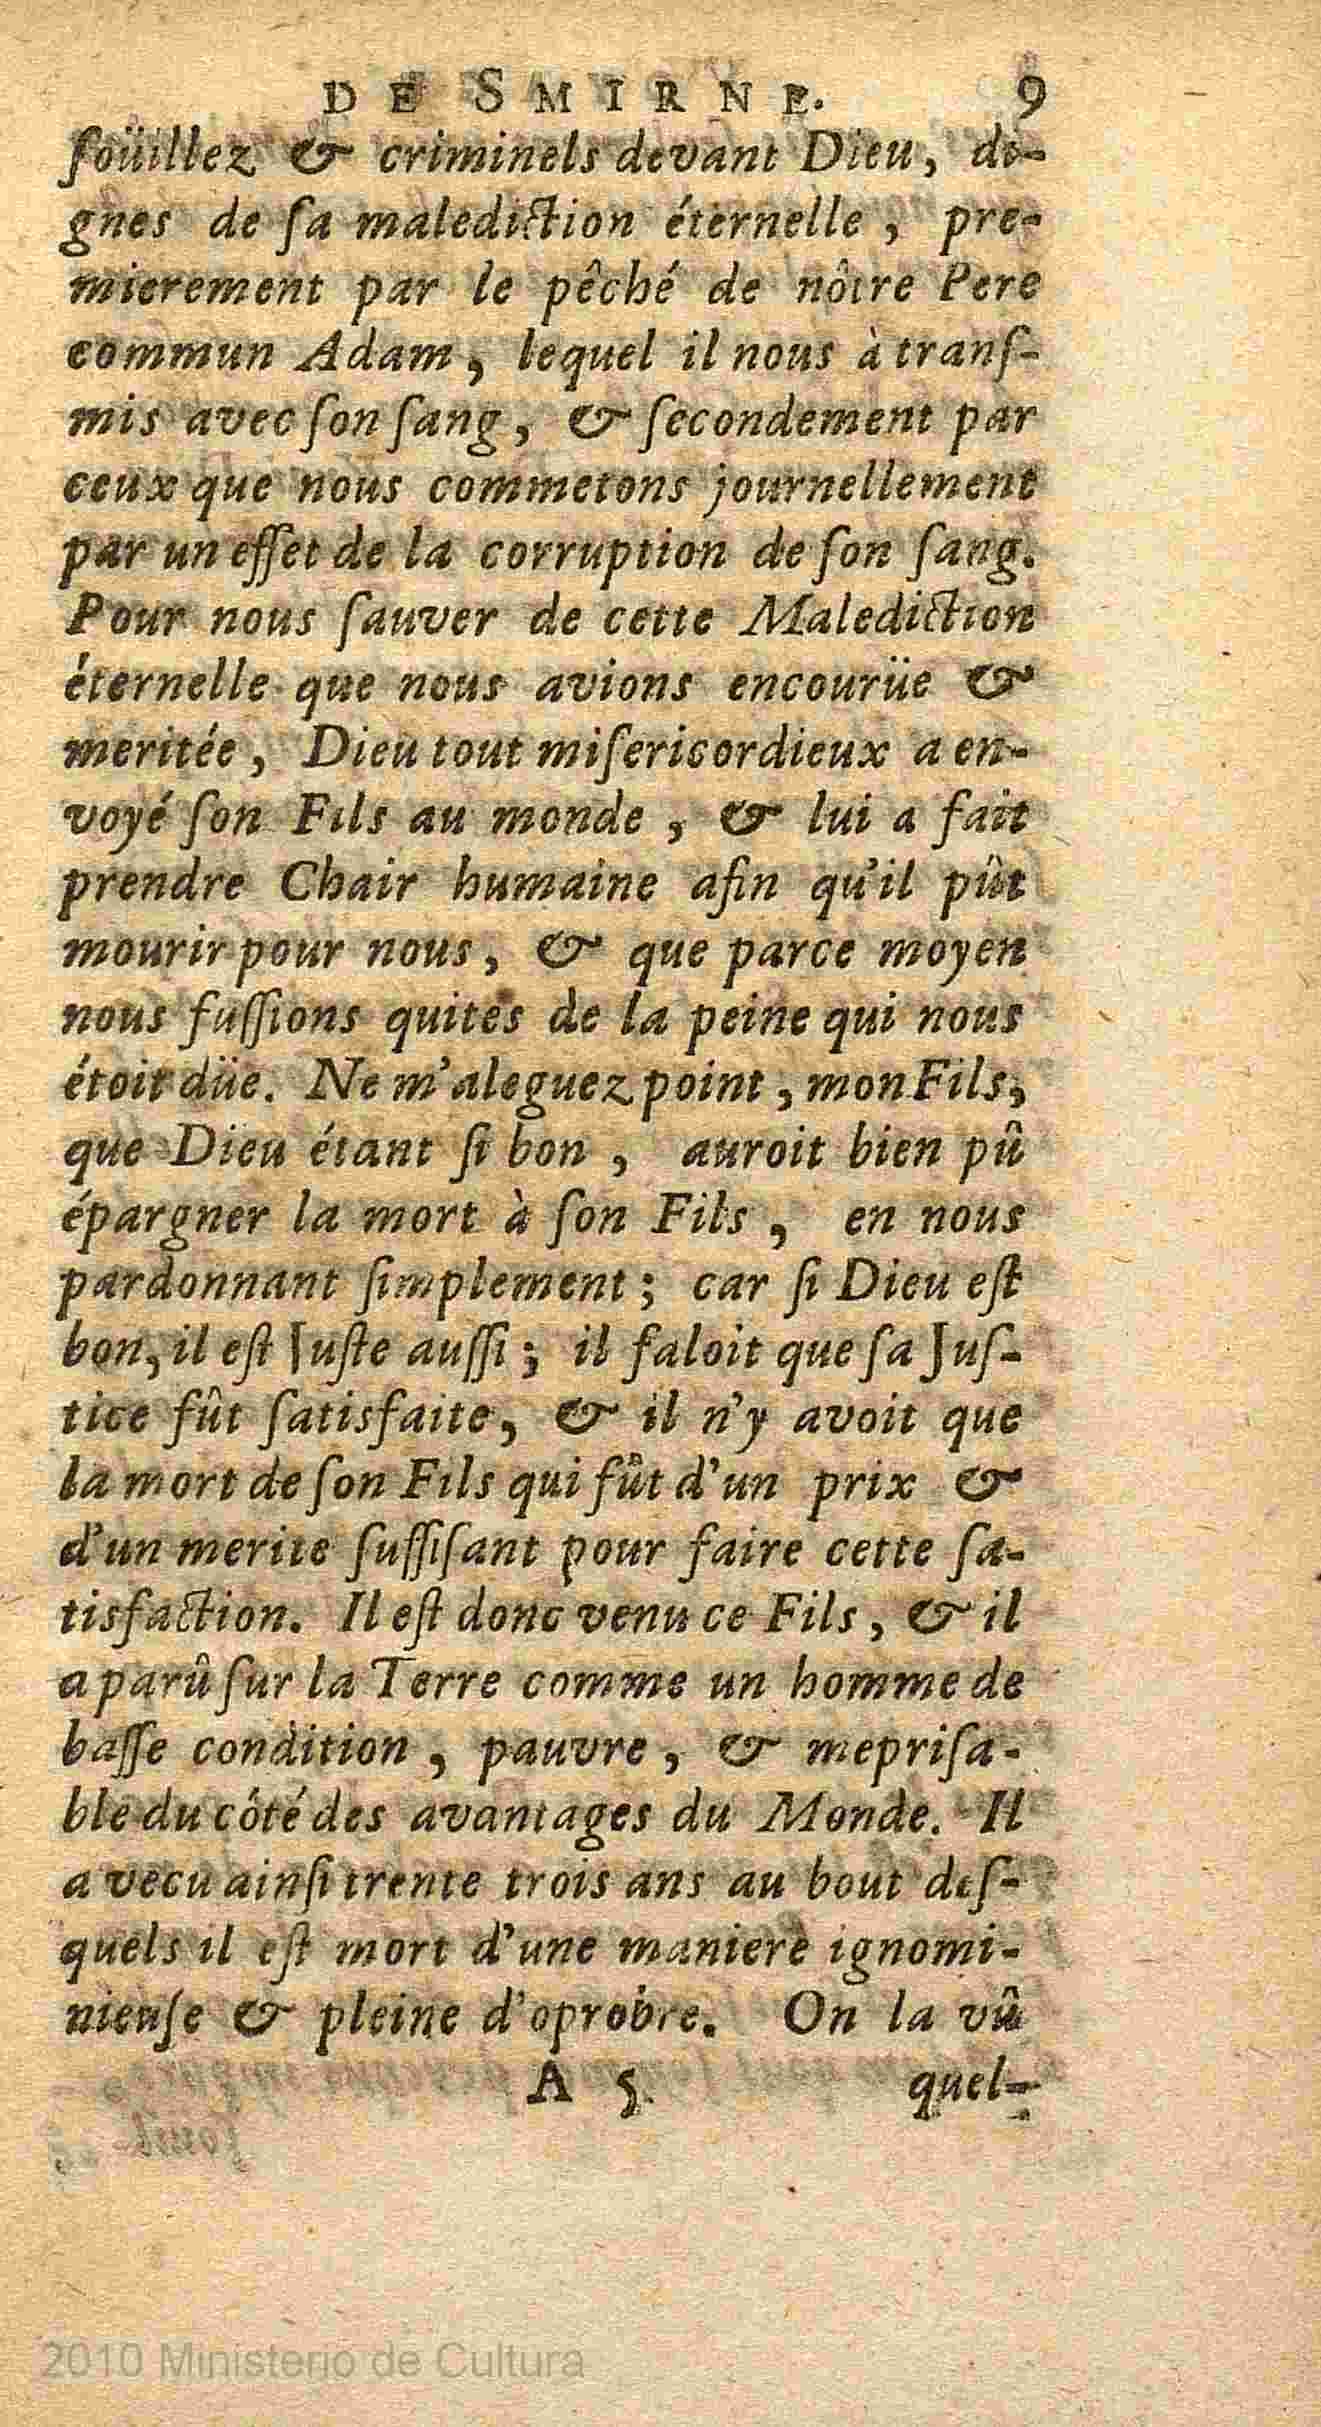 DE SMIRNE. 9
ſoüillez & criminels devant Dieu, di-
gnes de ſa malediction éternelle, pre-
mierement par le pêché de nôtre Pere
commun Adam, lequel il nous à tranſ-
mis avec ſon ſang, & ſecondement par
ceux que nous commetons journellement
par un effet de la corruption de ſon ſang.
Pour nous ſauver de cette Malediction
éternelle que nous avions encourüe &
meritée, Dieu tout miſericordieux a en-
voyé ſon Fils au monde, & lui a fait
prendre Chair humaine afin qu'il pût
mourir pour nous, & que parce moyen
nous fuſſions quites de la peine qui nous
étoit düe. Ne m'aleguez point, mon Fils,
que Dieu étant ſi bon, auroit bien pû
épargner la mort à ſon Fils, en nous
pardonnant ſimplement; car ſi Dieu eſt
bon, il eſt Juſte auſſi; il faloit que ſa Juſ-
tice fût ſatisfaite, & il n'y avoit que
la mort de ſon Fils qui fût d'un prix &
d'un merite ſuffiſant pour faire cette ſa-
tisfaction. Il eſt donc venu ce Fils, & il
a parû ſur la Terre comme un homme de
baſſe condition, pauvre, & mepriſa-
ble du côté des avantages du Monde. Il
a vecu ainſi trente trois ans au bout deſ-
quels il eſt mort d'une maniere ignomi-
nieuſe & pleine d'oprobre. On la vû
A 5. quel-
2010 Ministerio de Cultura